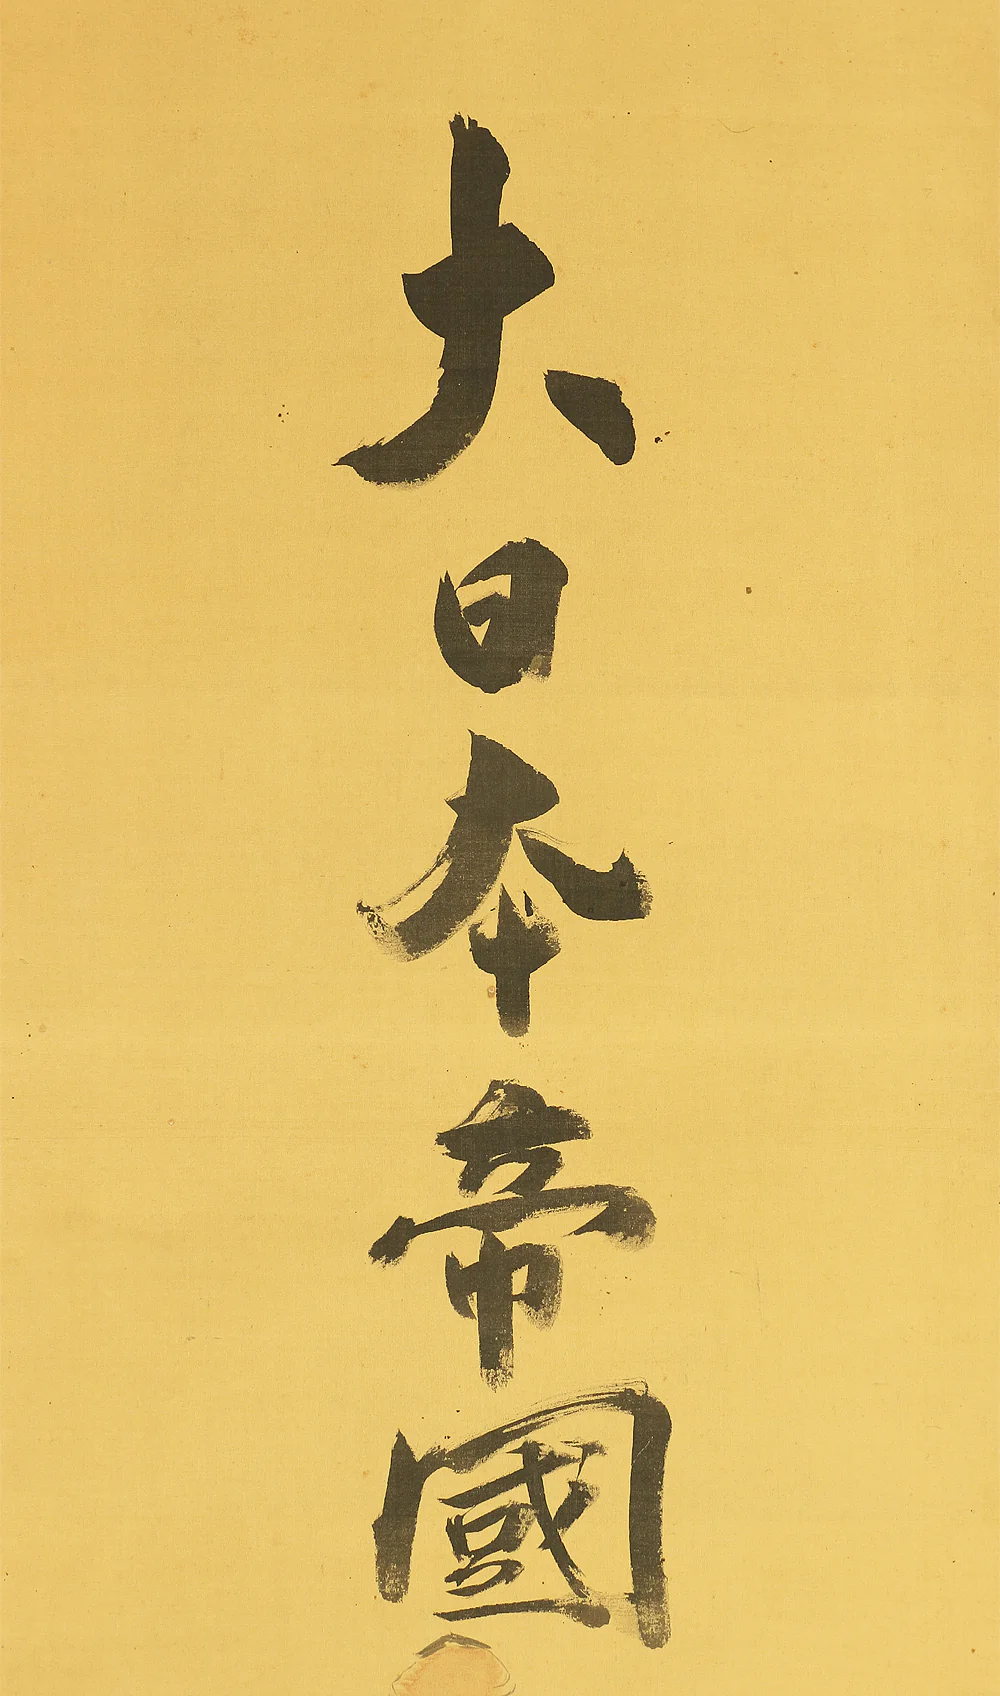 大日本帝國